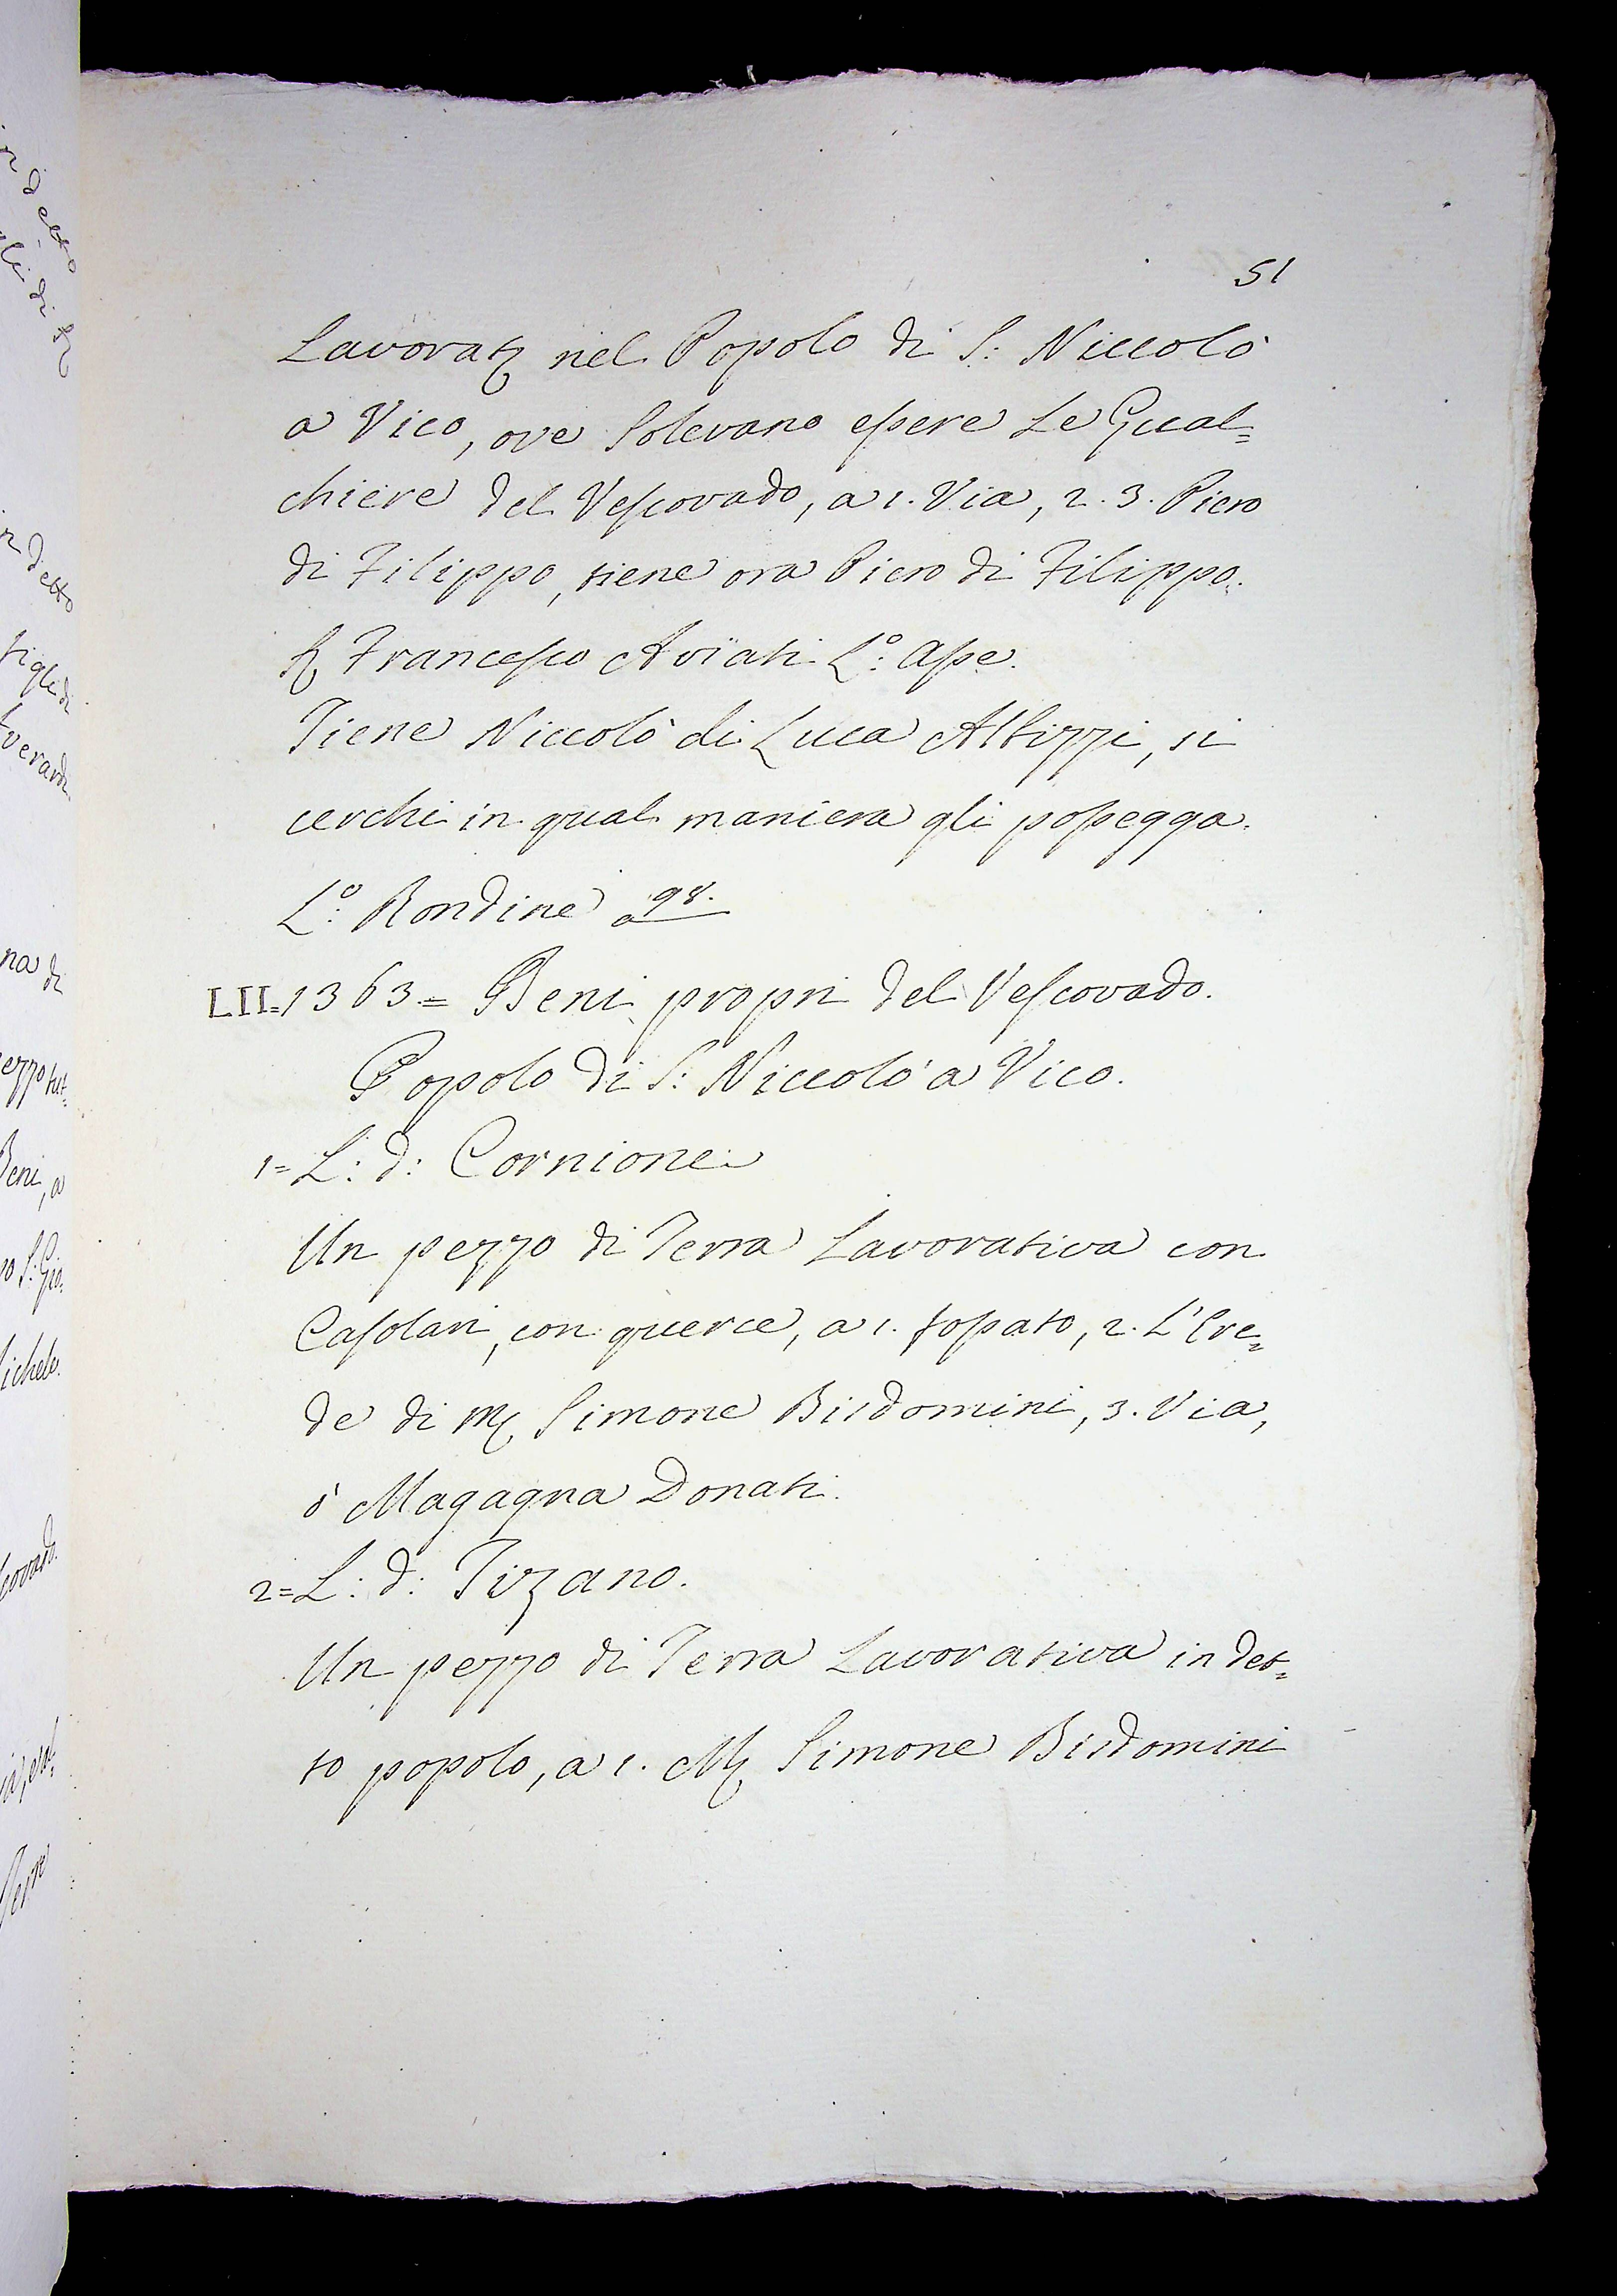 51
Lavorat. nel Popolo di S: Niccolò
a Vico, ove Solevano essere Le Gual=
chiere del Vescovado, a 1. Via, 2. 3. Piero
di Filippo, tiene ora Piero di Filippo.
Francesco Aviati L.º: Asse.
Tiene Niccolò di Luca Albizzi, si
cerchi in qual maniera gli possegga.
L.º: Rondine a 98.
LII=1363= Beni propri del Vescovado.
Popolo di S: Niccolò a Vico.
1= L: d: Cornione
Un pezzo di Terra Lavorativa con
Casolari, con querce, a 1. fossato, 2. L'Ere=
de di M. Simone Bisdomini, 3. Via,
ò Magagna Donati.
2=L: d: Tizano.
Un pezzo di Terra Lavorativa in det=
to popolo, a 1. M. Simone Bisdomini